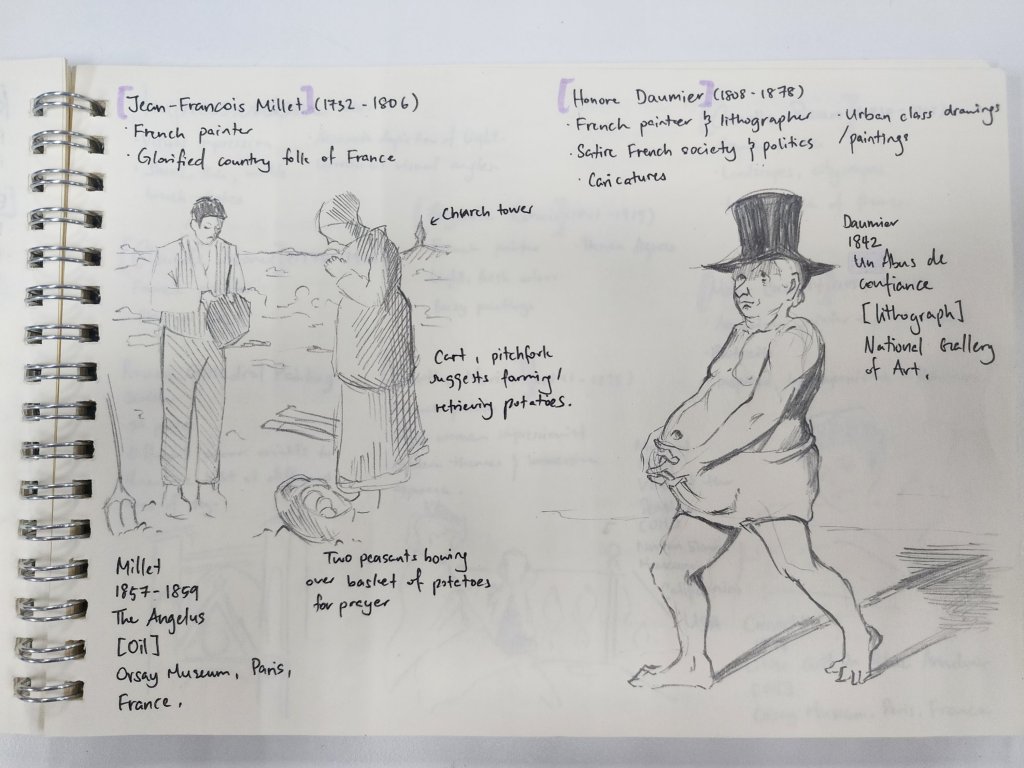 [Jean-Francois Millet] (1732 - 1806)
· French painter
· Glorified country folk of France
← Church tower
Cart, pitchfork
suggests farming/
retrieving potatoes.
Two peasants bowing
over basket of potatoes
for prayer
Millet
1857 - 1859
The Angelus
[Oil]
Orsay Museum, Paris,
France.
[Honore Daumier] (1808 - 1878)
· French painter & lithographer
· Satire French society & politics
· Caricatures
· Urban class drawings
/paintings
Daumier
1842
Un Abus de
confiance
[lithograph]
National Gallery
of Art.